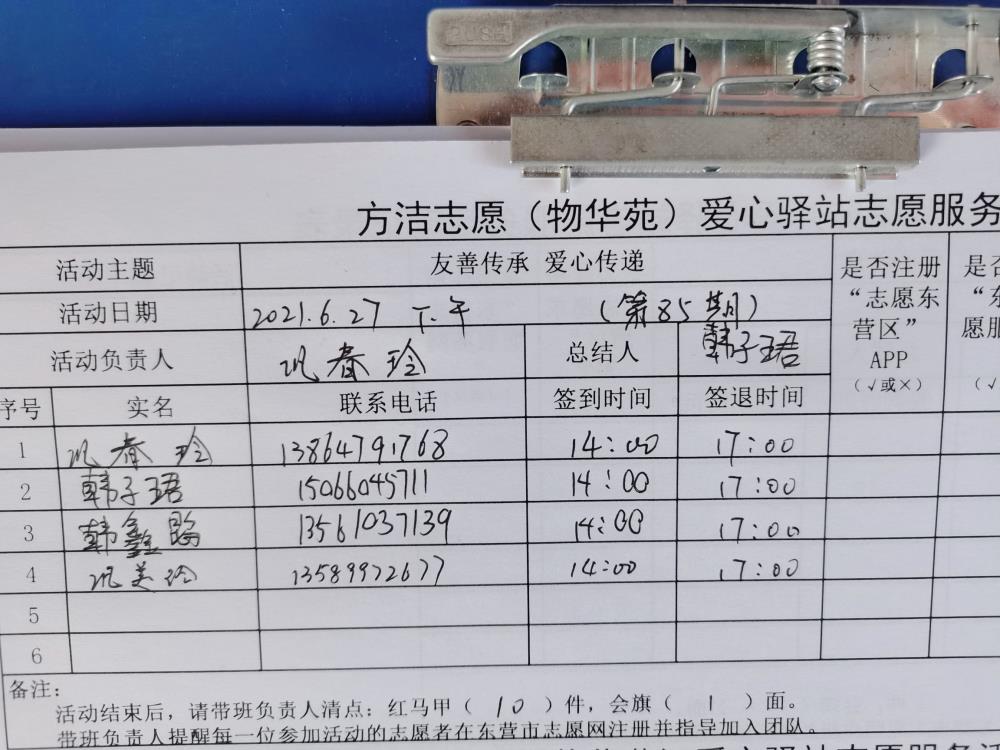 PUSH
方洁志愿（物华苑）爱心驿站志愿服务
活动主题 友善传承 爱心传递
活动日期 2021.6.27 下午 （第85期）
活动负责人 巩春玲 总结人 韩子珺
是否注册“志愿东营区”APP（√或×）
序号 实名 联系电话 签到时间 签退时间
1 巩春玲 13864791768 14:00 17:00
2 韩子珺 15066045711 14:00 17:00
3 韩鑫 13561037139 14:00 17:00
4 巩美玲 13589972677 14:00 17:00
5
6
备注：
活动结束后，请带班负责人清点：红马甲（10）件，会旗（1）面。
带班负责人提醒每一位参加活动的志愿者在东营市志愿网注册并指导加入团队。